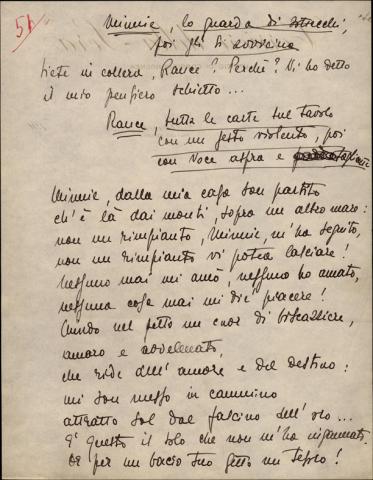 51
Minnie, lo guarda di sottecchi,
poi gli si avvicina
Siete in collera, Rance? Perché? Vi ho detto
il mio pensiero schietto...
Rance, butta le carte sul tavolo
con un gesto violento, poi
con voce aspra e tagliente
Minnie, dalla mia casa son partito
ch'è là dai monti, sopra un altro mare:
non un rimpianto, Minnie, m'ha seguito,
non un rimpianto vi potea lasciare!
Nessuno mai mi amò, nessuno ho amato,
nessuna cosa mai mi diè piacere!
Chiudo nel petto un cuor di biscazziere,
amaro e avvelenato,
che ride dell'amore e del destino:
mi son messo in cammino
attratto sol dal fascino dell'oro...
È questo il solo che non m'ha ingannato.
Or per un bacio tuo getto un tesoro!